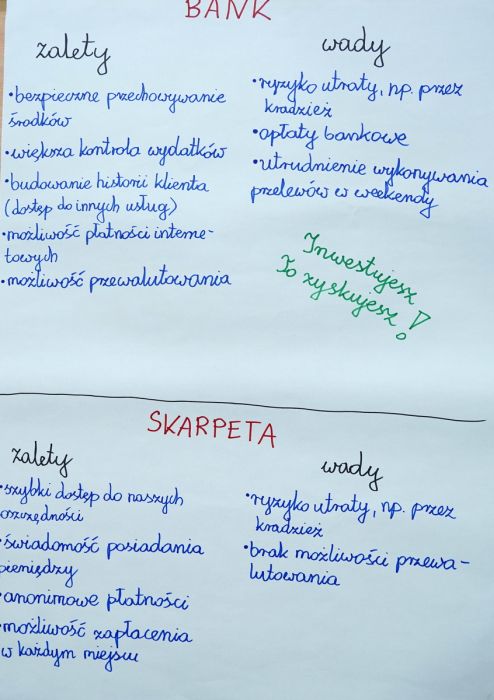 BANK
zalety
• bezpieczne przechowywanie
środków
• większa kontrola wydatków
• budowanie historii klienta
(dostęp do innych usług)
• możliwość płatności interne-
towych
• możliwość przewalutowania
wady
• ryzyko utraty, np. przez
kradzież
• opłaty bankowe
• utrudnienie wykonywania
przelewów w weekendy
Inwestujesz
To zyskujesz!
SKARPETA
zalety
• szybki dostęp do naszych
oszczędności
• świadomość posiadania
pieniędzy
• anonimowe płatności
• możliwość zapłacenia
w każdym miejscu
wady
• ryzyko utraty, np. przez
kradzież
• brak możliwości przewa-
lutowania